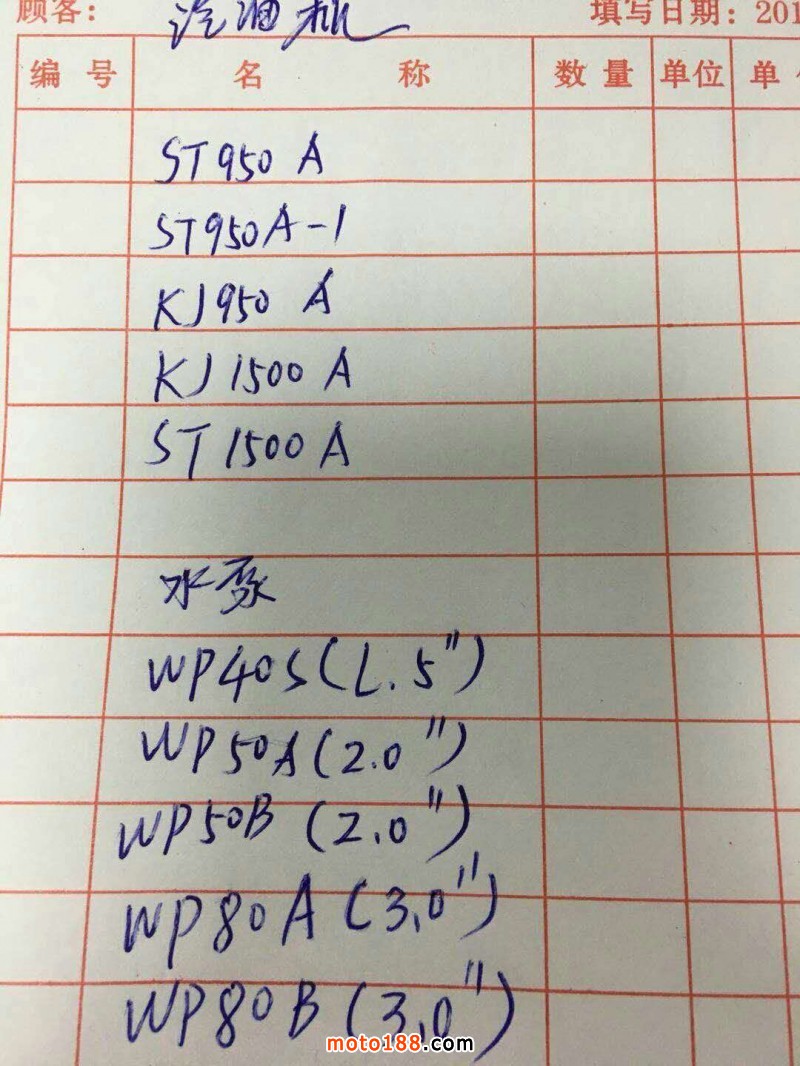 顾客: 汽油机 填写日期: 201
编号 名称 数量 单位 单
ST950 A
ST950A-1
KJ950 A
KJ1500 A
ST1500A
水泵
WP40S(1.5")
WP50A(2.0")
WP50B (2.0")
WP80A (3.0")
WP80B (3.0")
moto188.com